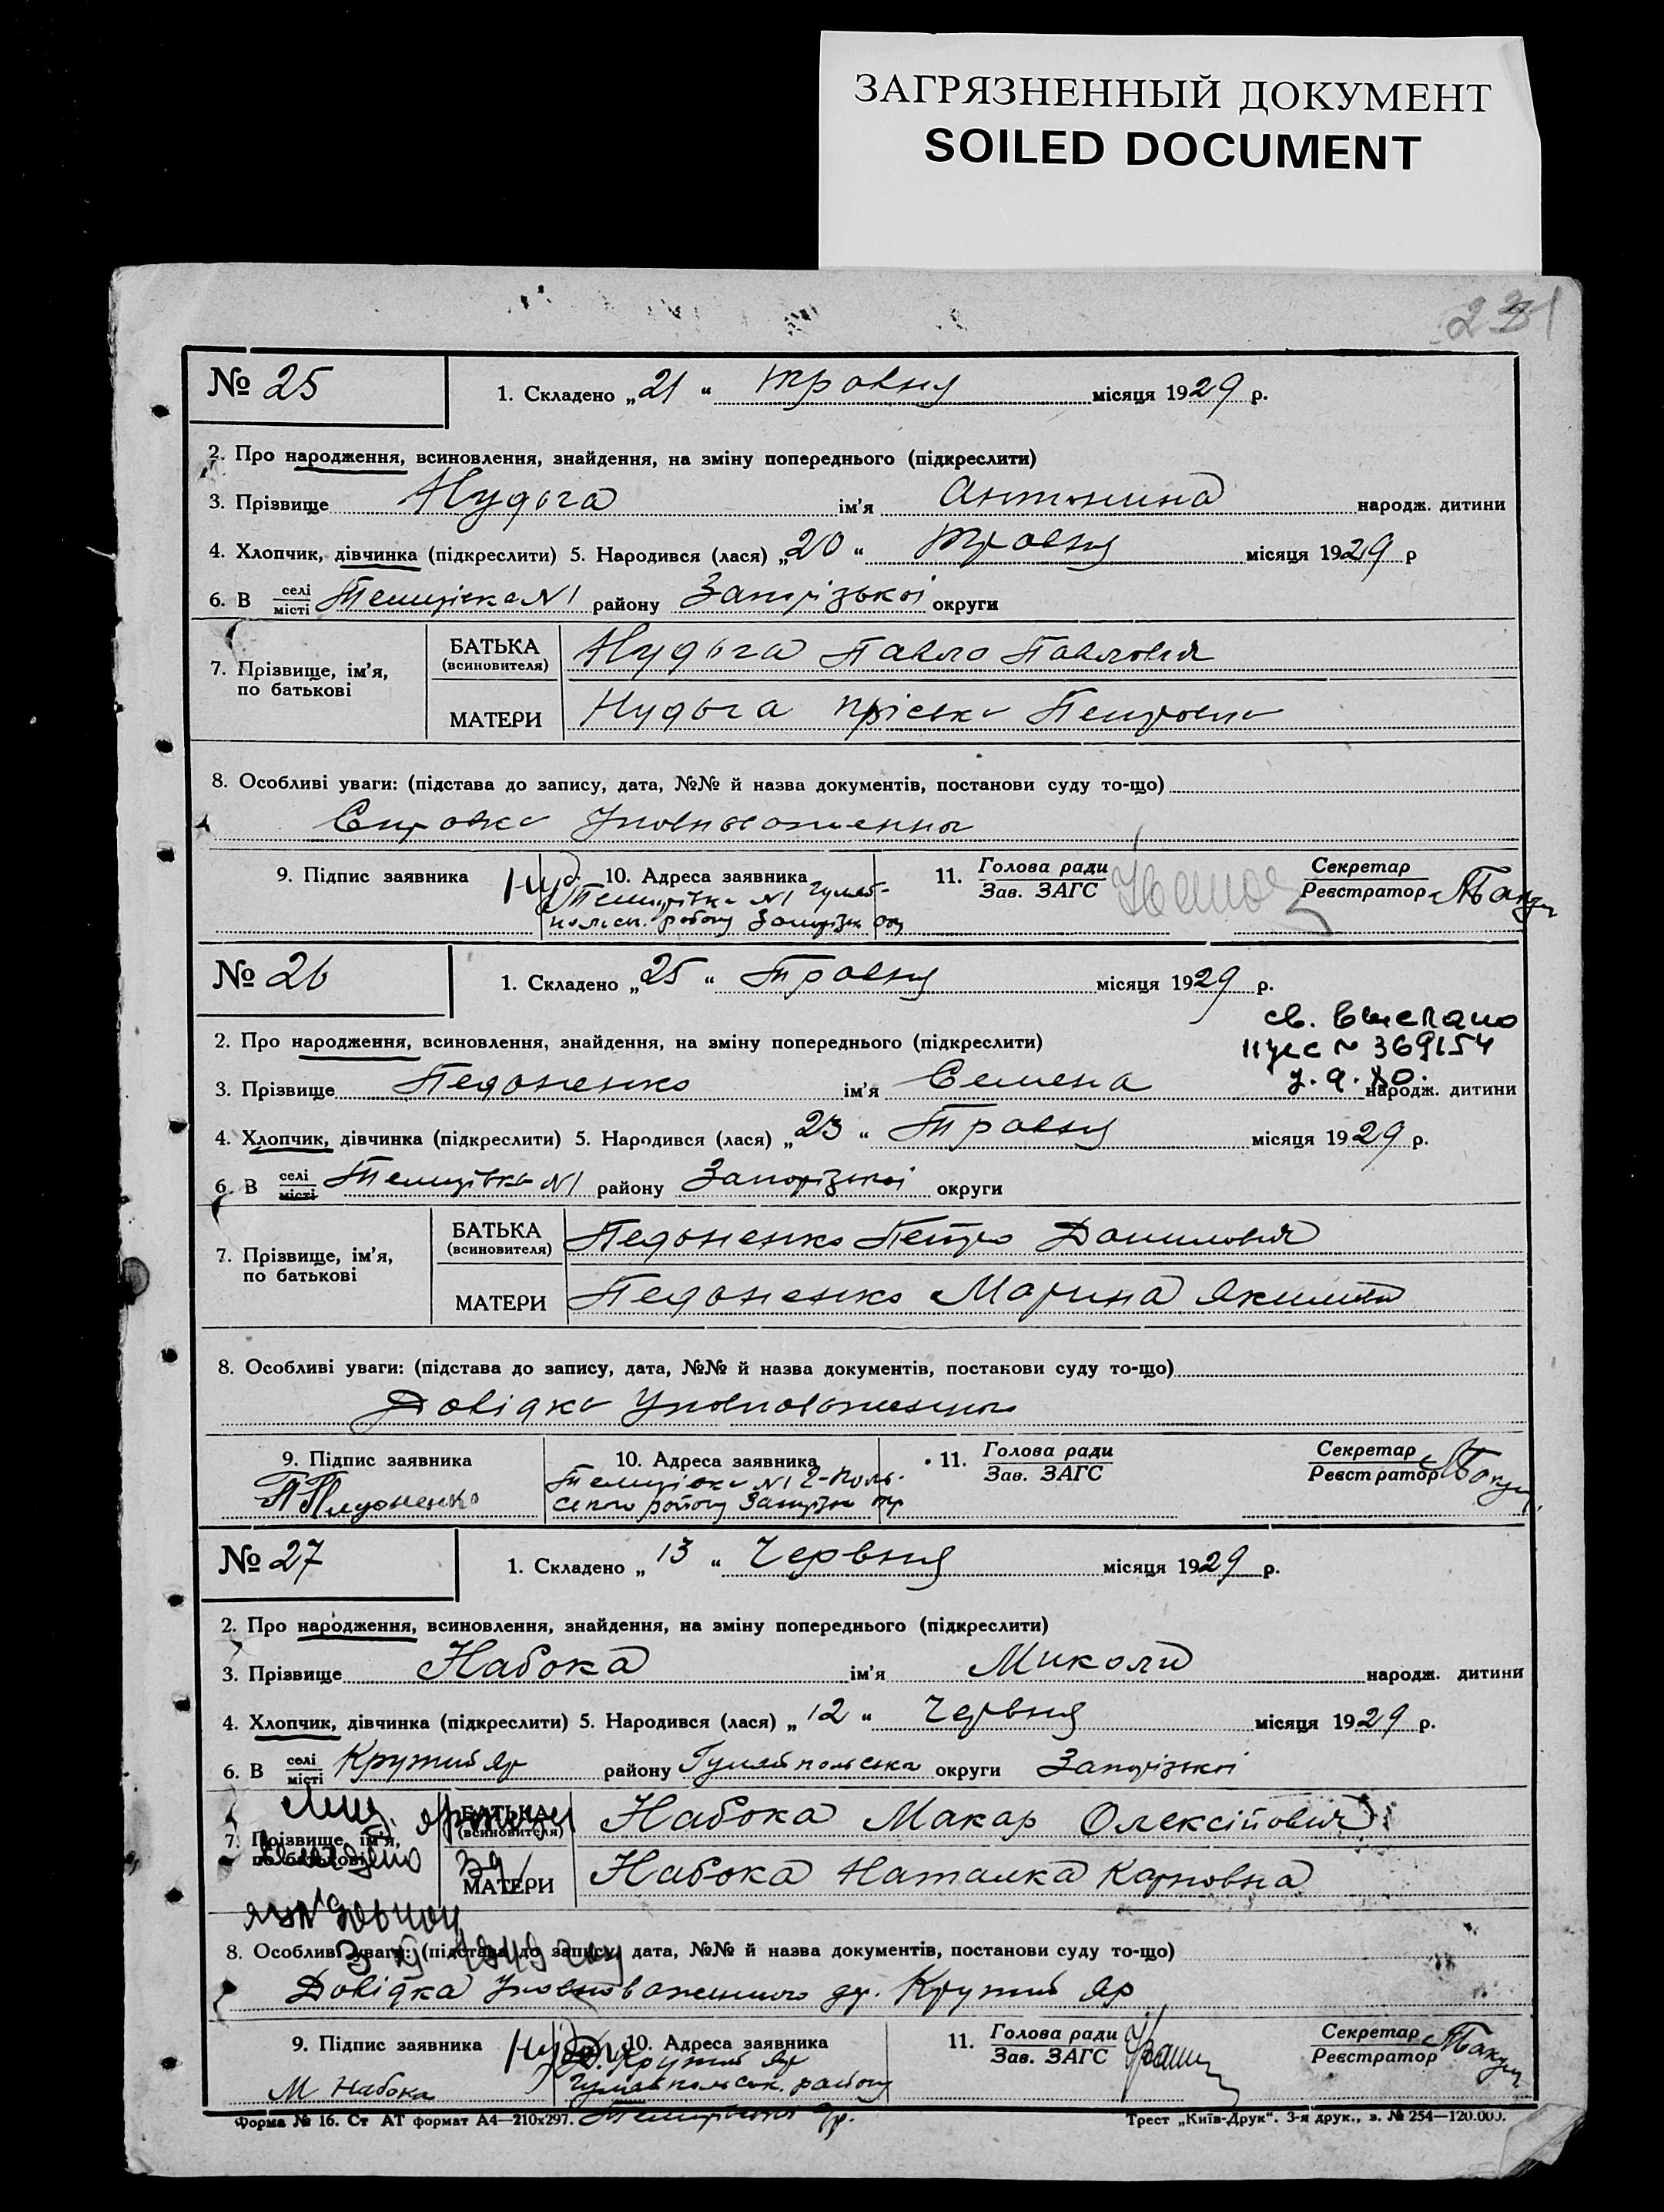 ЗАГРЯЗНЕННЫЙ ДОКУМЕНТ
SOILED DOCUMENT
№ 25
1. Складено „21“ травня місяця 1929 р.
2. Про народження, всиновлення, знайдення, на зміну попереднього (підкреслити)
3. Прізвище Нудьга ім'я Антонина народж. дитини
4. Хлопчик, дівчинка (підкреслити) 5. Народився (лася) „20“ Травня місяця 1929 р
6. В селі місті Темирівка №1 району Запорізької округи
7. Прізвище, ім'я, по батькові
БАТЬКА (всиновителя) Нудьга Павло Павлович
МАТЕРИ Нудьга Пріська Петровна
8. Особливі уваги: (підстава до запису, дата, №№ й назва документів, постанови суду то-що)
9. Підпис заявника
10. Адреса заявника
Темирівка №1 Гуляй-
польск. району Запоріж окр
11. Голова ради
Зав. ЗАГС
Секретар
Реєстратор
№ 26
1. Складено „25“ Травня місяця 1929 р.
св. Выслано
№ 369154
2. Про народження, всиновлення, знайдення, на зміну попереднього (підкреслити)
3. Прізвище Педоненко ім'я Семена народж. дитини
4. Хлопчик, дівчинка (підкреслити) 5. Народився (лася) „23“ Травня місяця 1929 р.
6. В селі місті Темирівка №1 району Запорізької округи
7. Прізвище, ім'я, по батькові
БАТЬКА (всиновителя) Педоненко Петро Данилович
МАТЕРИ Педоненко Марина
8. Особливі уваги: (підстава до запису, дата, №№ й назва документів, постанови суду то-що)
Довідка Уповноваженного
9. Підпис заявника
10. Адреса заявника
Темирівка №1 Г-Поль-
ського району Запоріж окр
11. Голова ради
Зав. ЗАГС
Секретар
Реєстратор
№ 27
1. Складено „13“ Червня місяця 1929 р.
2. Про народження, всиновлення, знайдення, на зміну попереднього (підкреслити)
3. Прізвище Набока ім'я Миколи народж. дитини
4. Хлопчик, дівчинка (підкреслити) 5. Народився (лася) „12“ Червня місяця 1929 р.
6. В селі місті Крутий Яр району Гуляйпольська округи Запорізької
7. Прізвище, ім'я, по батькові
БАТЬКА (всиновителя) Набока Макар Олексійович
МАТЕРИ Набока Наталка Карповна
8. Особливі уваги: (підстава до запису, дата, №№ й назва документів, постанови суду то-що)
Довідка Уповноваженного др. Крутий Яр
9. Підпис заявника
М Набока
10. Адреса заявника
Крутий Яр
Гуляйпольськ. району
11. Голова ради
Зав. ЗАГС
Секретар
Реєстратор
Форма № 16. Ст АТ формат А4—210х297.
Трест „Київ-Друк“. 3-я друк., з. № 254—120.000.